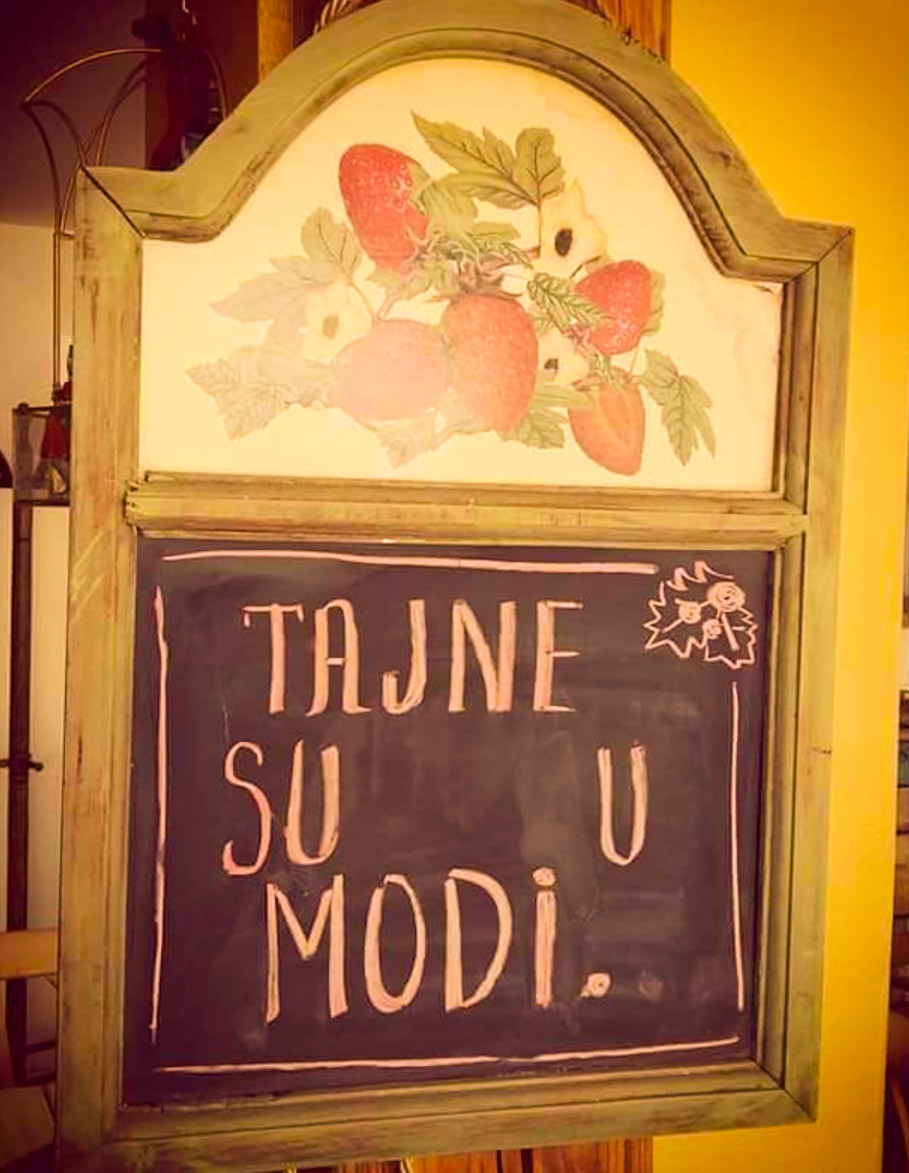 TAJNE
SU U
MODi.